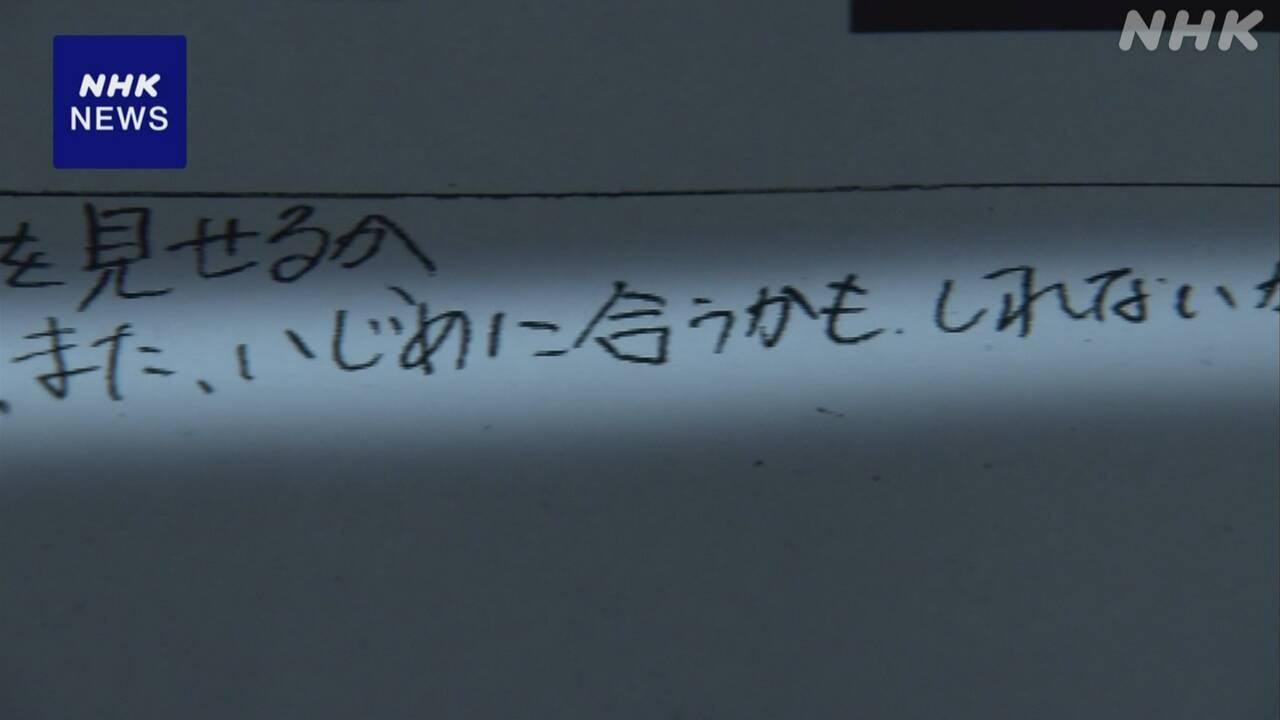 NHK
NHK
NEWS
を見せるか
、また、いじめに合うかもしれないか